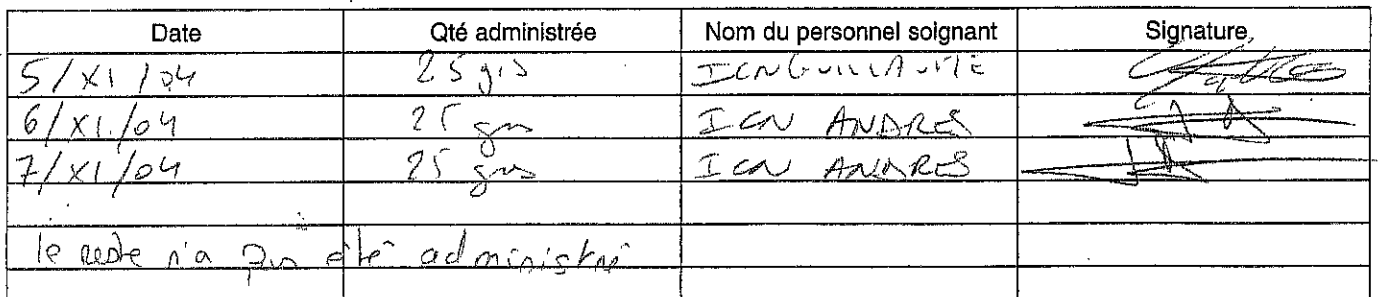 Date Qté administrée Nom du personnel soignant Signature
5/XI/04 25 grs ICN GUILLAUME
6/XI/04 25 grs ICN ANDRES
7/XI/04 25 grs ICN ANDRES
le reste n'a pas été administré